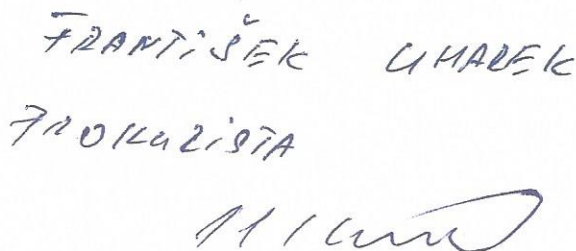 FRANTIŠEK UHAREK
PROKURISTA